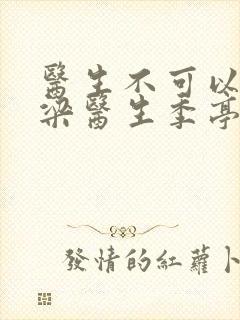 醫生不可以
梁醫生季亭
發情的紅蘿卜